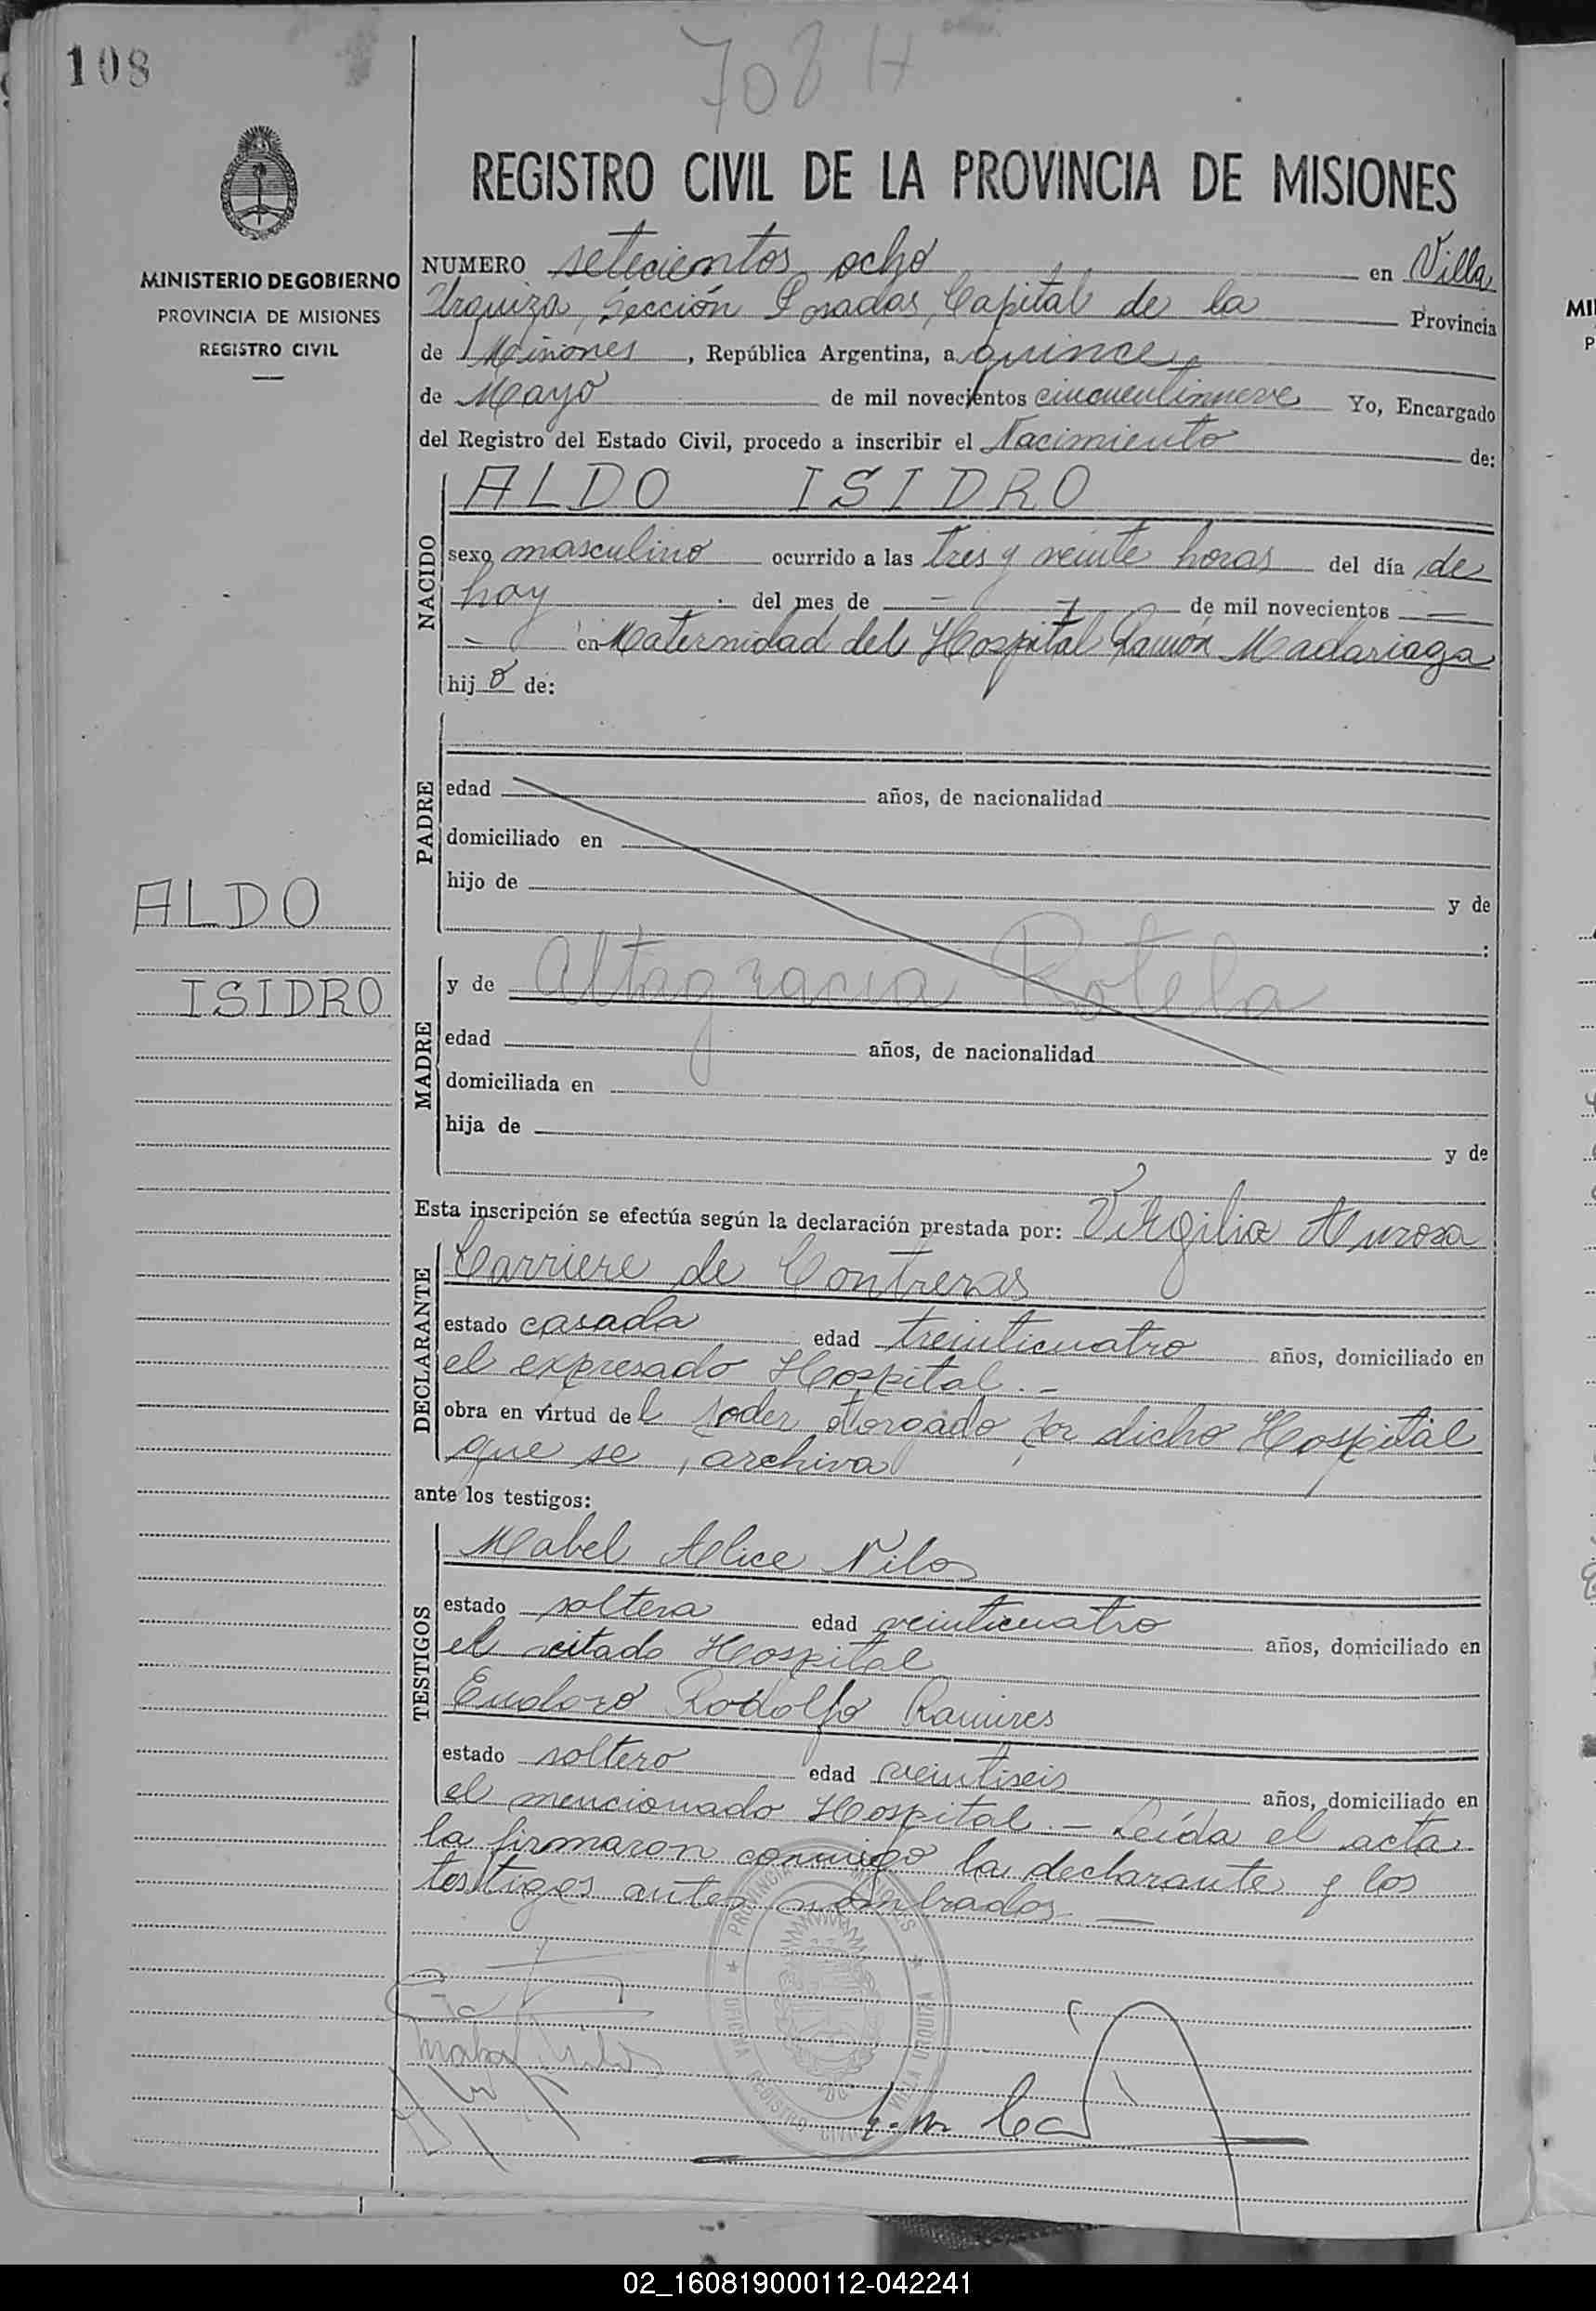 108
708 H
MINISTERIO DE GOBIERNO
PROVINCIA DE MISIONES
REGISTRO CIVIL
ALDO
ISIDRO
REGISTRO CIVIL DE LA PROVINCIA DE MISIONES
NUMERO setecientos ocho en Villa
Urquiza, Sección Posadas, Capital de la Provincia
de Misiones, República Argentina, a quince
de Mayo de mil novecientos cincuentinueve Yo, Encargado
del Registro del Estado Civil, procedo a inscribir el Nacimiento de:
NACIDO
ALDO ISIDRO
sexo masculino ocurrido a las tres y veinte horas del día de
hoy del mes de — de mil novecientos —
— en Maternidad del Hospital Ramón Madariaga
hijo de:
PADRE
edad años, de nacionalidad
domiciliado en
hijo de y de
:
MADRE
y de Altagracia Rotela
edad años, de nacionalidad
domiciliada en
hija de y de
Esta inscripción se efectúa según la declaración prestada por: Virgilia
DECLARANTE
Carriere de Contreras
estado casada edad treinticuatro años, domiciliado en
el expresado Hospital.-
obra en virtud del poder otorgado por dicho Hospital
que se archiva
ante los testigos:
TESTIGOS
Mabel Alice Nilos
estado soltera edad veinticuatro años, domiciliado en
el citado Hospital
Eudoro Rodolfo Ramires
estado soltero edad veintiseis años, domiciliado en
el mencionado Hospital.- Leída el acta
la firmaron conmigo la declarante y los
testigos antes nombrados —
PROVINCIA DE MISIONES
OFICINA REGISTRO CIVIL VILLA URQUIZA
02_160819000112-042241